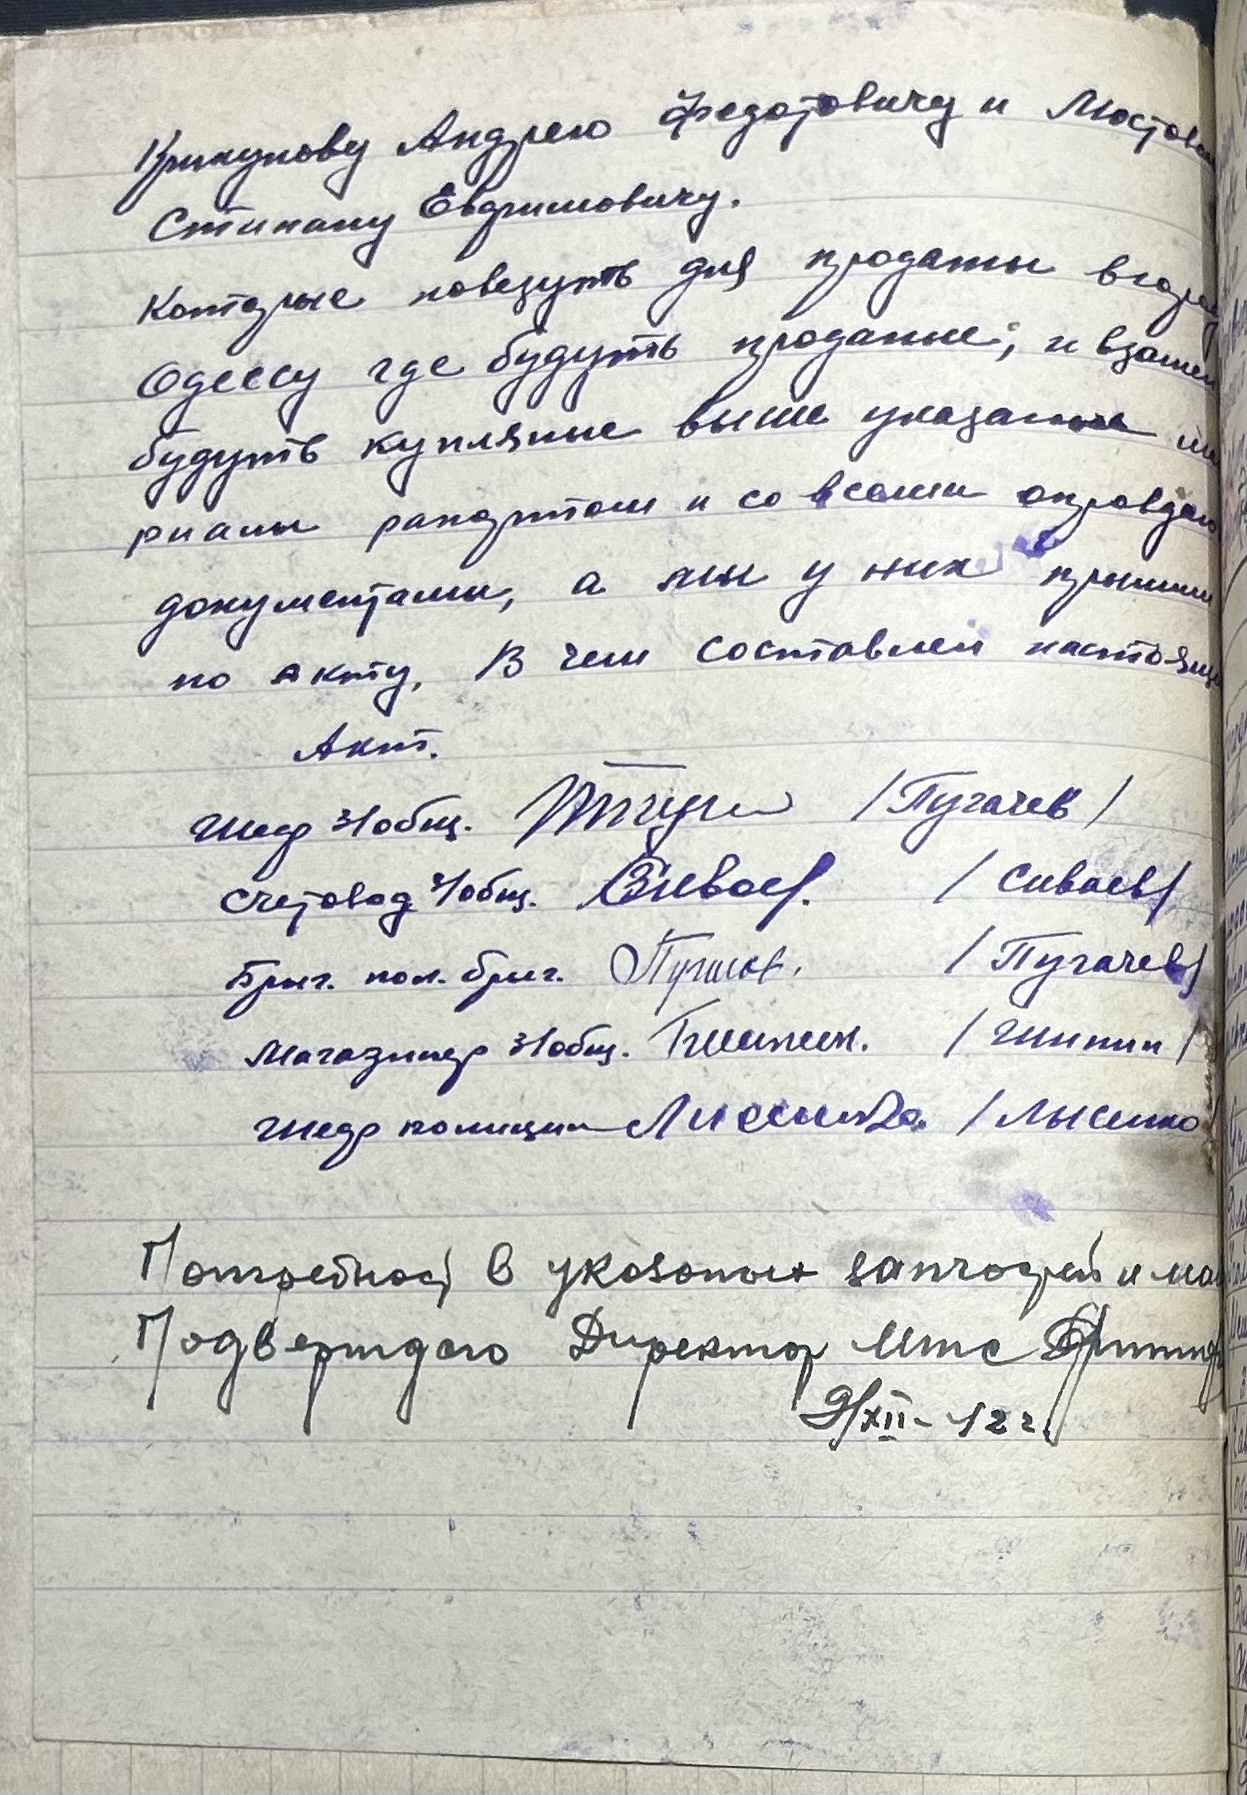 Крикунову Андрею Федотовичу и Мостов
Стипану Евдримовичу.
Которые повезуть для продаты в город
Одессу где будуть проданые, и взамен
будуть купляные выше указаные
риалы рапортом и со всеми оправдаю
документами, а мы у них прыним
по акту. В чем составлен настоящ
Акт.
Шеф 31 общ. /Пугачев/
Счетовод 31 общ. Сиваев. /Сиваев/
Бриг. пол. бриг. Пугачов. /Пугачев/
Магазинер 31 общ. /Шипин/
Шеф полиции Лисенко. /Лысенко
Потребност в указоных запчостей и мат
Подверждаю Директор Мтс
9/XII-42 г.